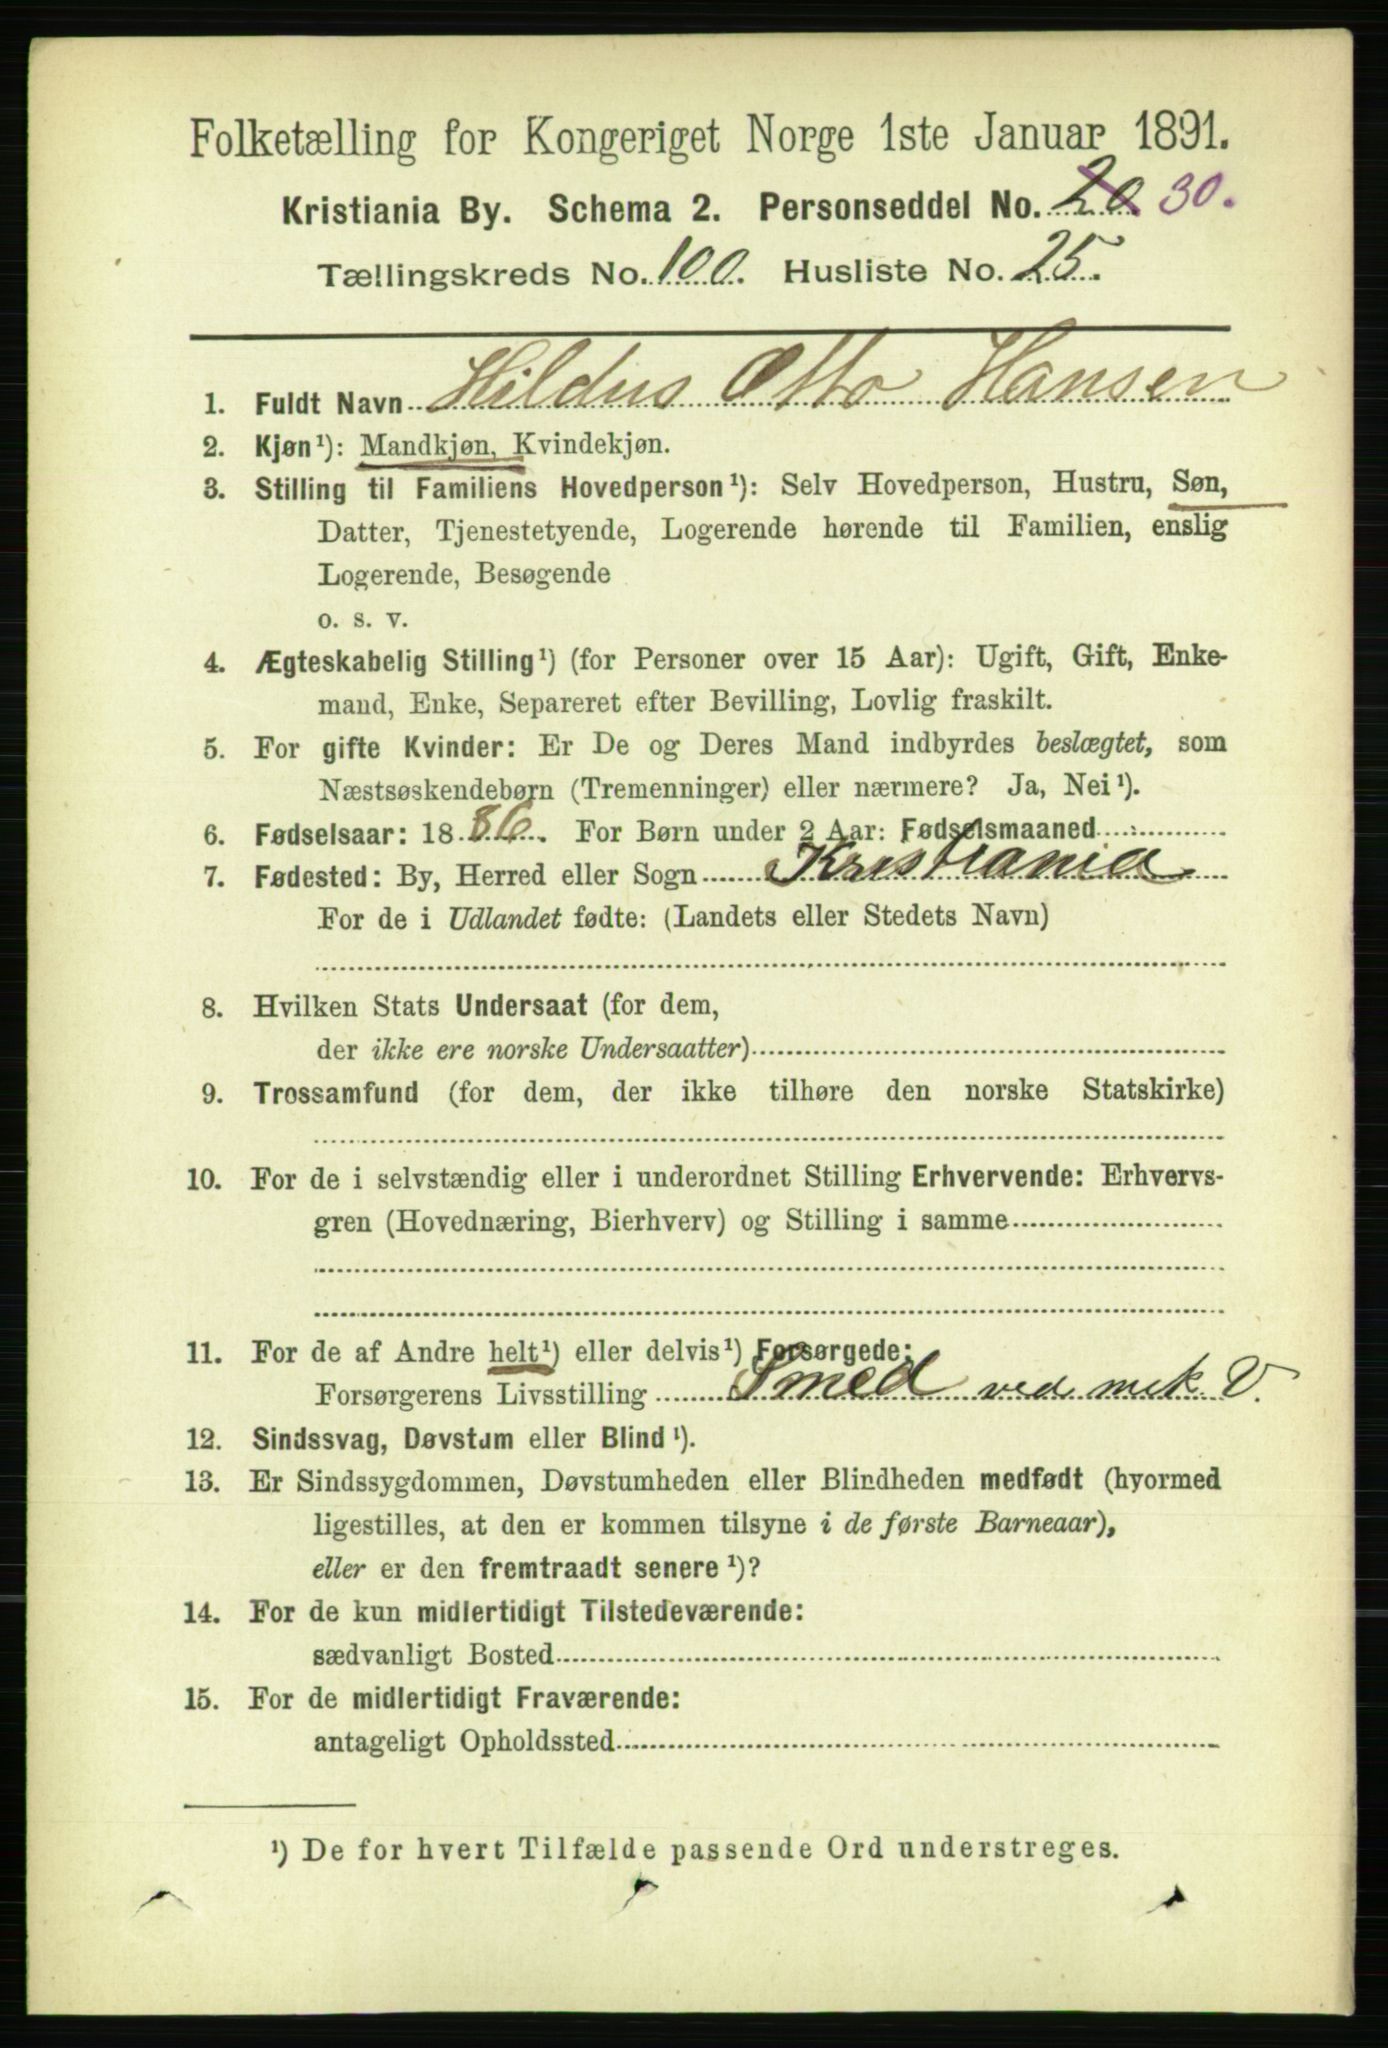 Folketælling for Kongeriget Norge 1ste Januar 1891.
Kristiania By. Schema 2. Personseddel No. 20 30.
Tællingskreds No. 100. Husliste No. 25.
1. Fuldt Navn Hildus Otto Hansen
2. Kjøn¹): Mandkjøn, Kvindekjøn.
3. Stilling til Familiens Hovedperson¹): Selv Hovedperson, Hustru, Søn,
Datter, Tjenestetyende, Logerende hørende til Familien, enslig
Logerende, Besøgende
o. s. v.
4. Ægteskabelig Stilling¹) (for Personer over 15 Aar): Ugift, Gift, Enke-
mand, Enke, Separeret efter Bevilling, Lovlig fraskilt.
5. For gifte Kvinder: Er De og Deres Mand indbyrdes beslægtet, som
Næstsøskendebørn (Tremenninger) eller nærmere? Ja, Nei¹).
6. Fødselsaar: 1886. For Børn under 2 Aar: Fødselsmaaned
7. Fødested: By, Herred eller Sogn Kristiania
For de i Udlandet fødte: (Landets eller Stedets Navn)
8. Hvilken Stats Undersaat (for dem,
der ikke ere norske Undersaatter)
9. Trossamfund (for dem, der ikke tilhøre den norske Statskirke)
10. For de i selvstændig eller i underordnet Stilling Erhvervende: Erhvervs-
gren (Hovednæring, Bierhverv) og Stilling i samme
11. For de af Andre helt¹) eller delvis¹) Forsørgede:
Forsørgerens Livsstilling Smed ved mek V.
12. Sindssvag, Døvstum eller Blind¹).
13. Er Sindssygdommen, Døvstumheden eller Blindheden medfødt (hvormed
ligestilles, at den er kommen tilsyne i de første Barneaar),
eller er den fremtraadt senere¹)?
14. For de kun midlertidigt Tilstedeværende:
sædvanligt Bosted
15. For de midlertidigt Fraværende:
antageligt Opholdssted
¹) De for hvert Tilfælde passende Ord understreges.